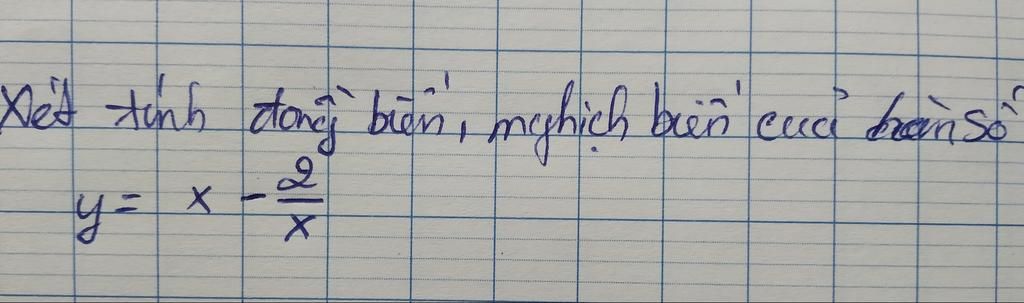 Xét tính đồng biến, nghịch biến của hàm số
y = x - \frac{2}{x}